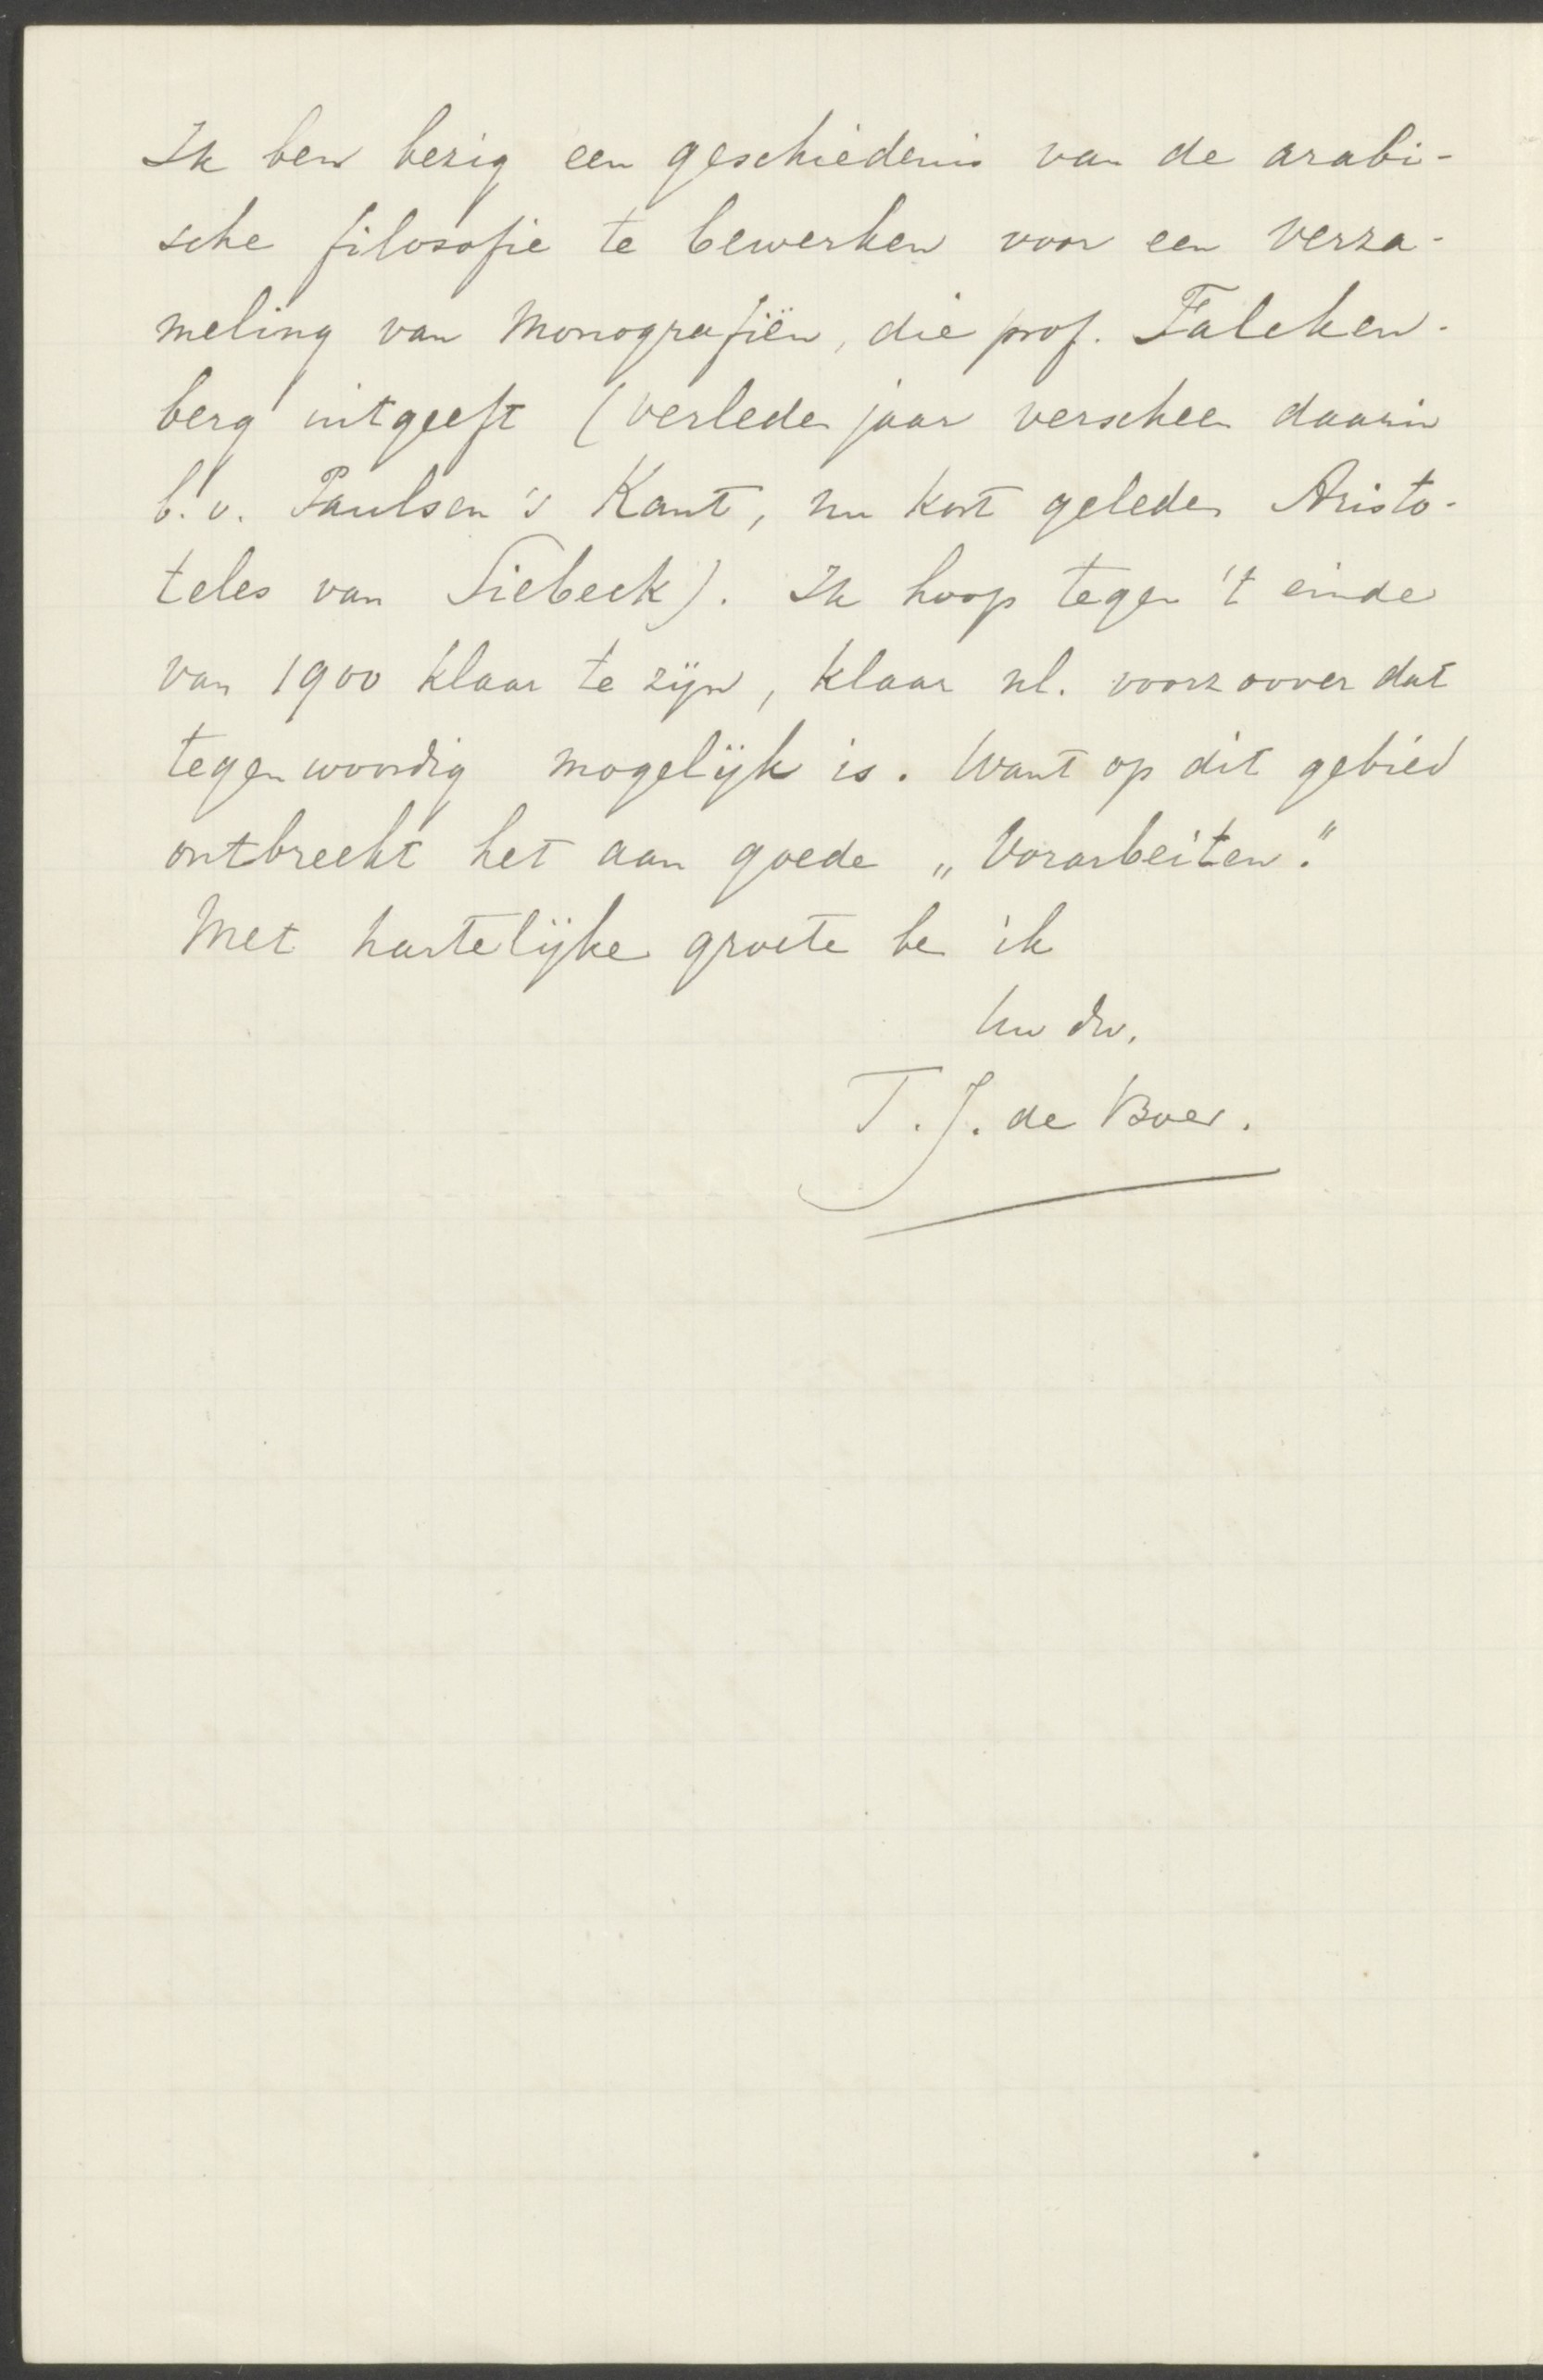 Ik ben bezig een geschiedenis van de arabi-
sche filosofie te bewerken voor een verza-
meling van Monografiën, die prof. Falcken-
berg uitgeeft (verleden jaar verscheen daarin
b.v. Paulsen's Kant, nu kort geleden Aristo-
teles van Siebeck). Ik hoop tegen 't einde
van 1900 klaar te zijn, klaar nl. voorzoover dat
tegenwoordig mogelijk is. Want op dit gebied
ontbreekt het aan goede „Vorarbeiten."
Met hartelijke groete ben ik
Uw dw.
T. J. de Boer.